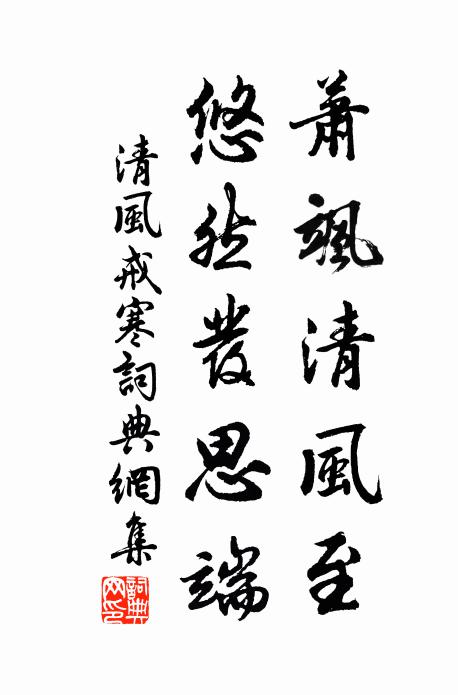 蕭颯清風至
悠然發思端
清風戒寒詞典網集
詞典
网印